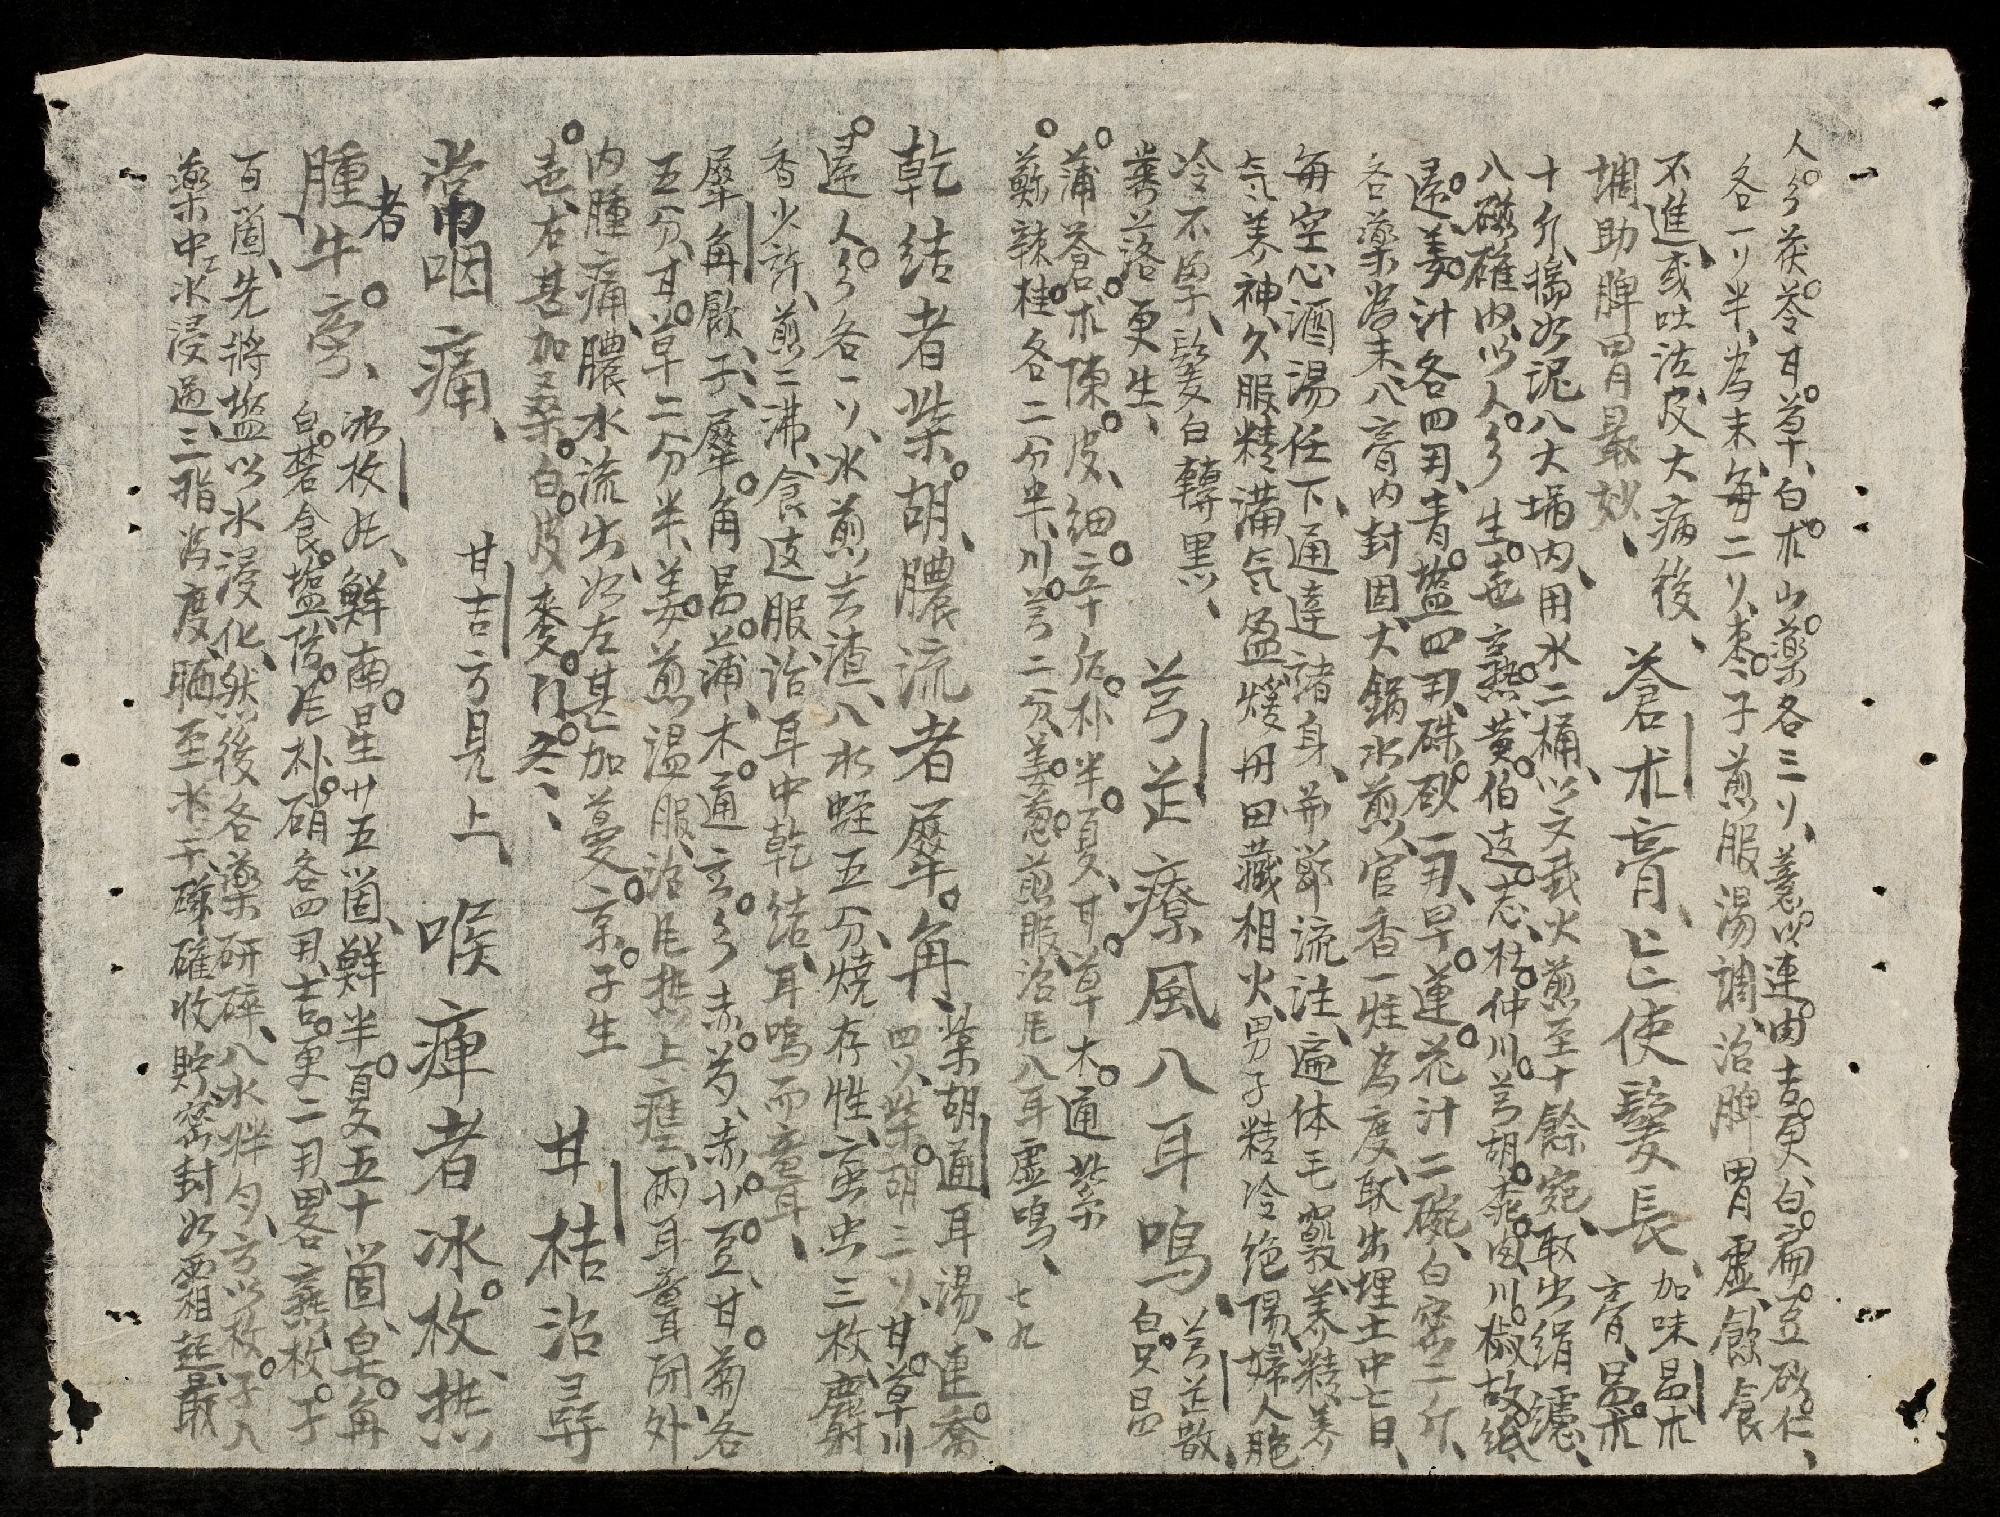 人参茯苓甘草、白朮山藥各三リ、薏以連肉吉更、白扁豆砂仁、
各一リ半、為末、每二リ、枣子煎服湯調、治脾胃虛、飲食
不進、或吐泣皮大病後、
蒼朮膏、能使鬓長、加味昌朮
膏、昌朮
調助脾胃最妙、
十斤、搗如泥八大埚内、用水二桶、以文武火煎至十餘宛、取出絹濾、
八磁碓内、以人参生芐、熟黄伯远志杜仲川芎胡桃肉川椒故紙
還姜汁各四用、青塩四用、硃砂一用、旱莲花汁二碗、白密二斤、
各藥為末、八膏内封固、大鍋水煎、官香一炷為度、取出埋土中七日、
每空心酒湯任下、通達諸身、並断流注、遍体毛竅、养精养
气养神、久服精满气盈、煖丹田藏相火、男子精冷绝陽、婦人胞
冷不孕、鬓白轉黑、
芎芷療風八耳鳴、芎芷散
白只昌
齿落更生、
蒲蒼朮陳皮、細辛厚朴半夏、甘草木通紫
蘇辣桂各二分半、川芎二分、姜葱煎服、治風八耳虛鳴、七九
乾結者柴胡、膿流者犀角、柴胡通耳湯、連喬
四リ、柴胡二リ、甘草川
違人参各一リ、水煎去渣、八水蛭五分、燒存性、䖟虫三枚、麝
香少許、煎二沸、食远服、治耳中乾結、耳鳴而聋耳、
犀角飲子、犀角昌蒲、木通玄参赤芍、赤小豆、甘菊各
五分、甘草二分半、姜煎温服、治風热上壅、兩耳聋閉外
内腫痛、膿水流出、如左甚加蔓京子生
芐、右甚加桑白皮麥门冬、
甘桔治尋
常咽痛、甘吉方見上、喉痺者冰枚、热
腫者牛旁、冰枚丸、鮮南星廿五箇、鮮半夏五十箇、皂角
白礬食塩倍、風朴硝各四用、吉更二用、畧熟枚子
百箇、先將塩以水浸化、然後各藥研碎、八水拌勻、方以枚子入
藥中、水浸過三指為度、晒至水干、磁碓收貯密封、如霜起最